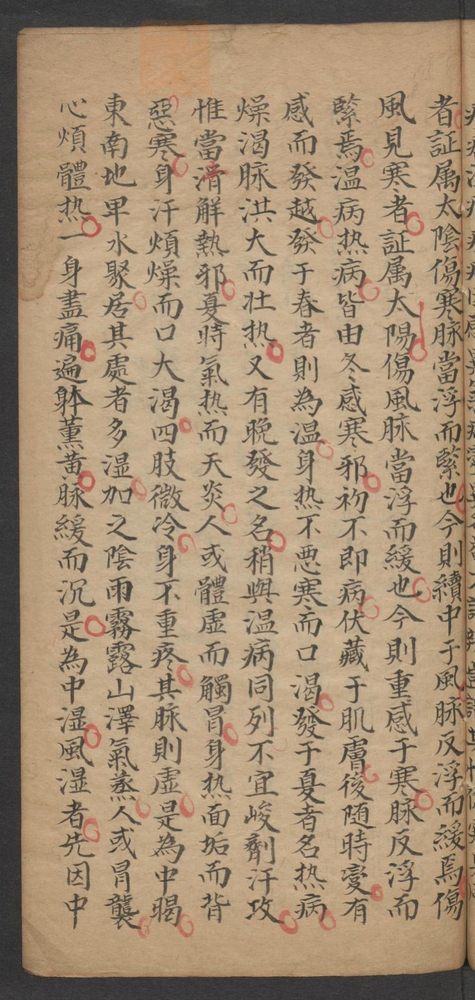 者証属太陰傷寒脉當浮而緊也今則續中于風脉反浮而緩焉傷
風見寒者証属太陽傷風脉當浮而緩也今則重感于寒脉反浮而
緊焉温病热病皆由冬感寒邪初不即病伏藏于肌膚後随時變有
感而發越發于春者則為温身热不悪寒而口渴發于夏者名热病
燥渴脉洪大而壮热又有晚發之名稍與温病同列不宜峻劑汗攻
惟當清解熱邪夏時氣热而天炎人或體虚而觸冒身热面垢而背
惡寒身汗煩燥而口大渴四肢微冷身不重疼其脉則虚是為中暍
東南地卑水聚居其處者多湿加之陰雨霧露山澤氣蒸人或冒襲
心煩體热一身盡痛遍躰薰黄脉緩而沉是為中湿風湿者先因中